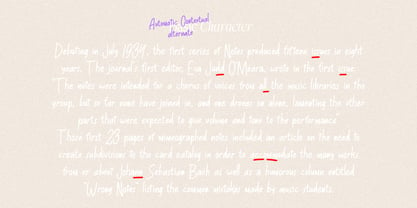 Automatic Contextual
alternate
Character
Debuting in July 1934, the first series of Notes produced fifteen issues in eight
years. The journal's first editor, Eva Judd O'Meara, wrote in the first issue:
"The notes were intended for a chorus of voices from all the music libraries in the
group, but so far none have joined in, and one drones on alone, lamenting the other
parts that were expected to give volume and tone to the performance"
Those first 23 pages of mimeographed notes included an article on the need to
create subdivisions to the card catalog in order to accommodate the many works
from or about Johann Sebastian Bach as well as a humorous column entitled
"Wrong Notes" listing the common mistakes made by music students.